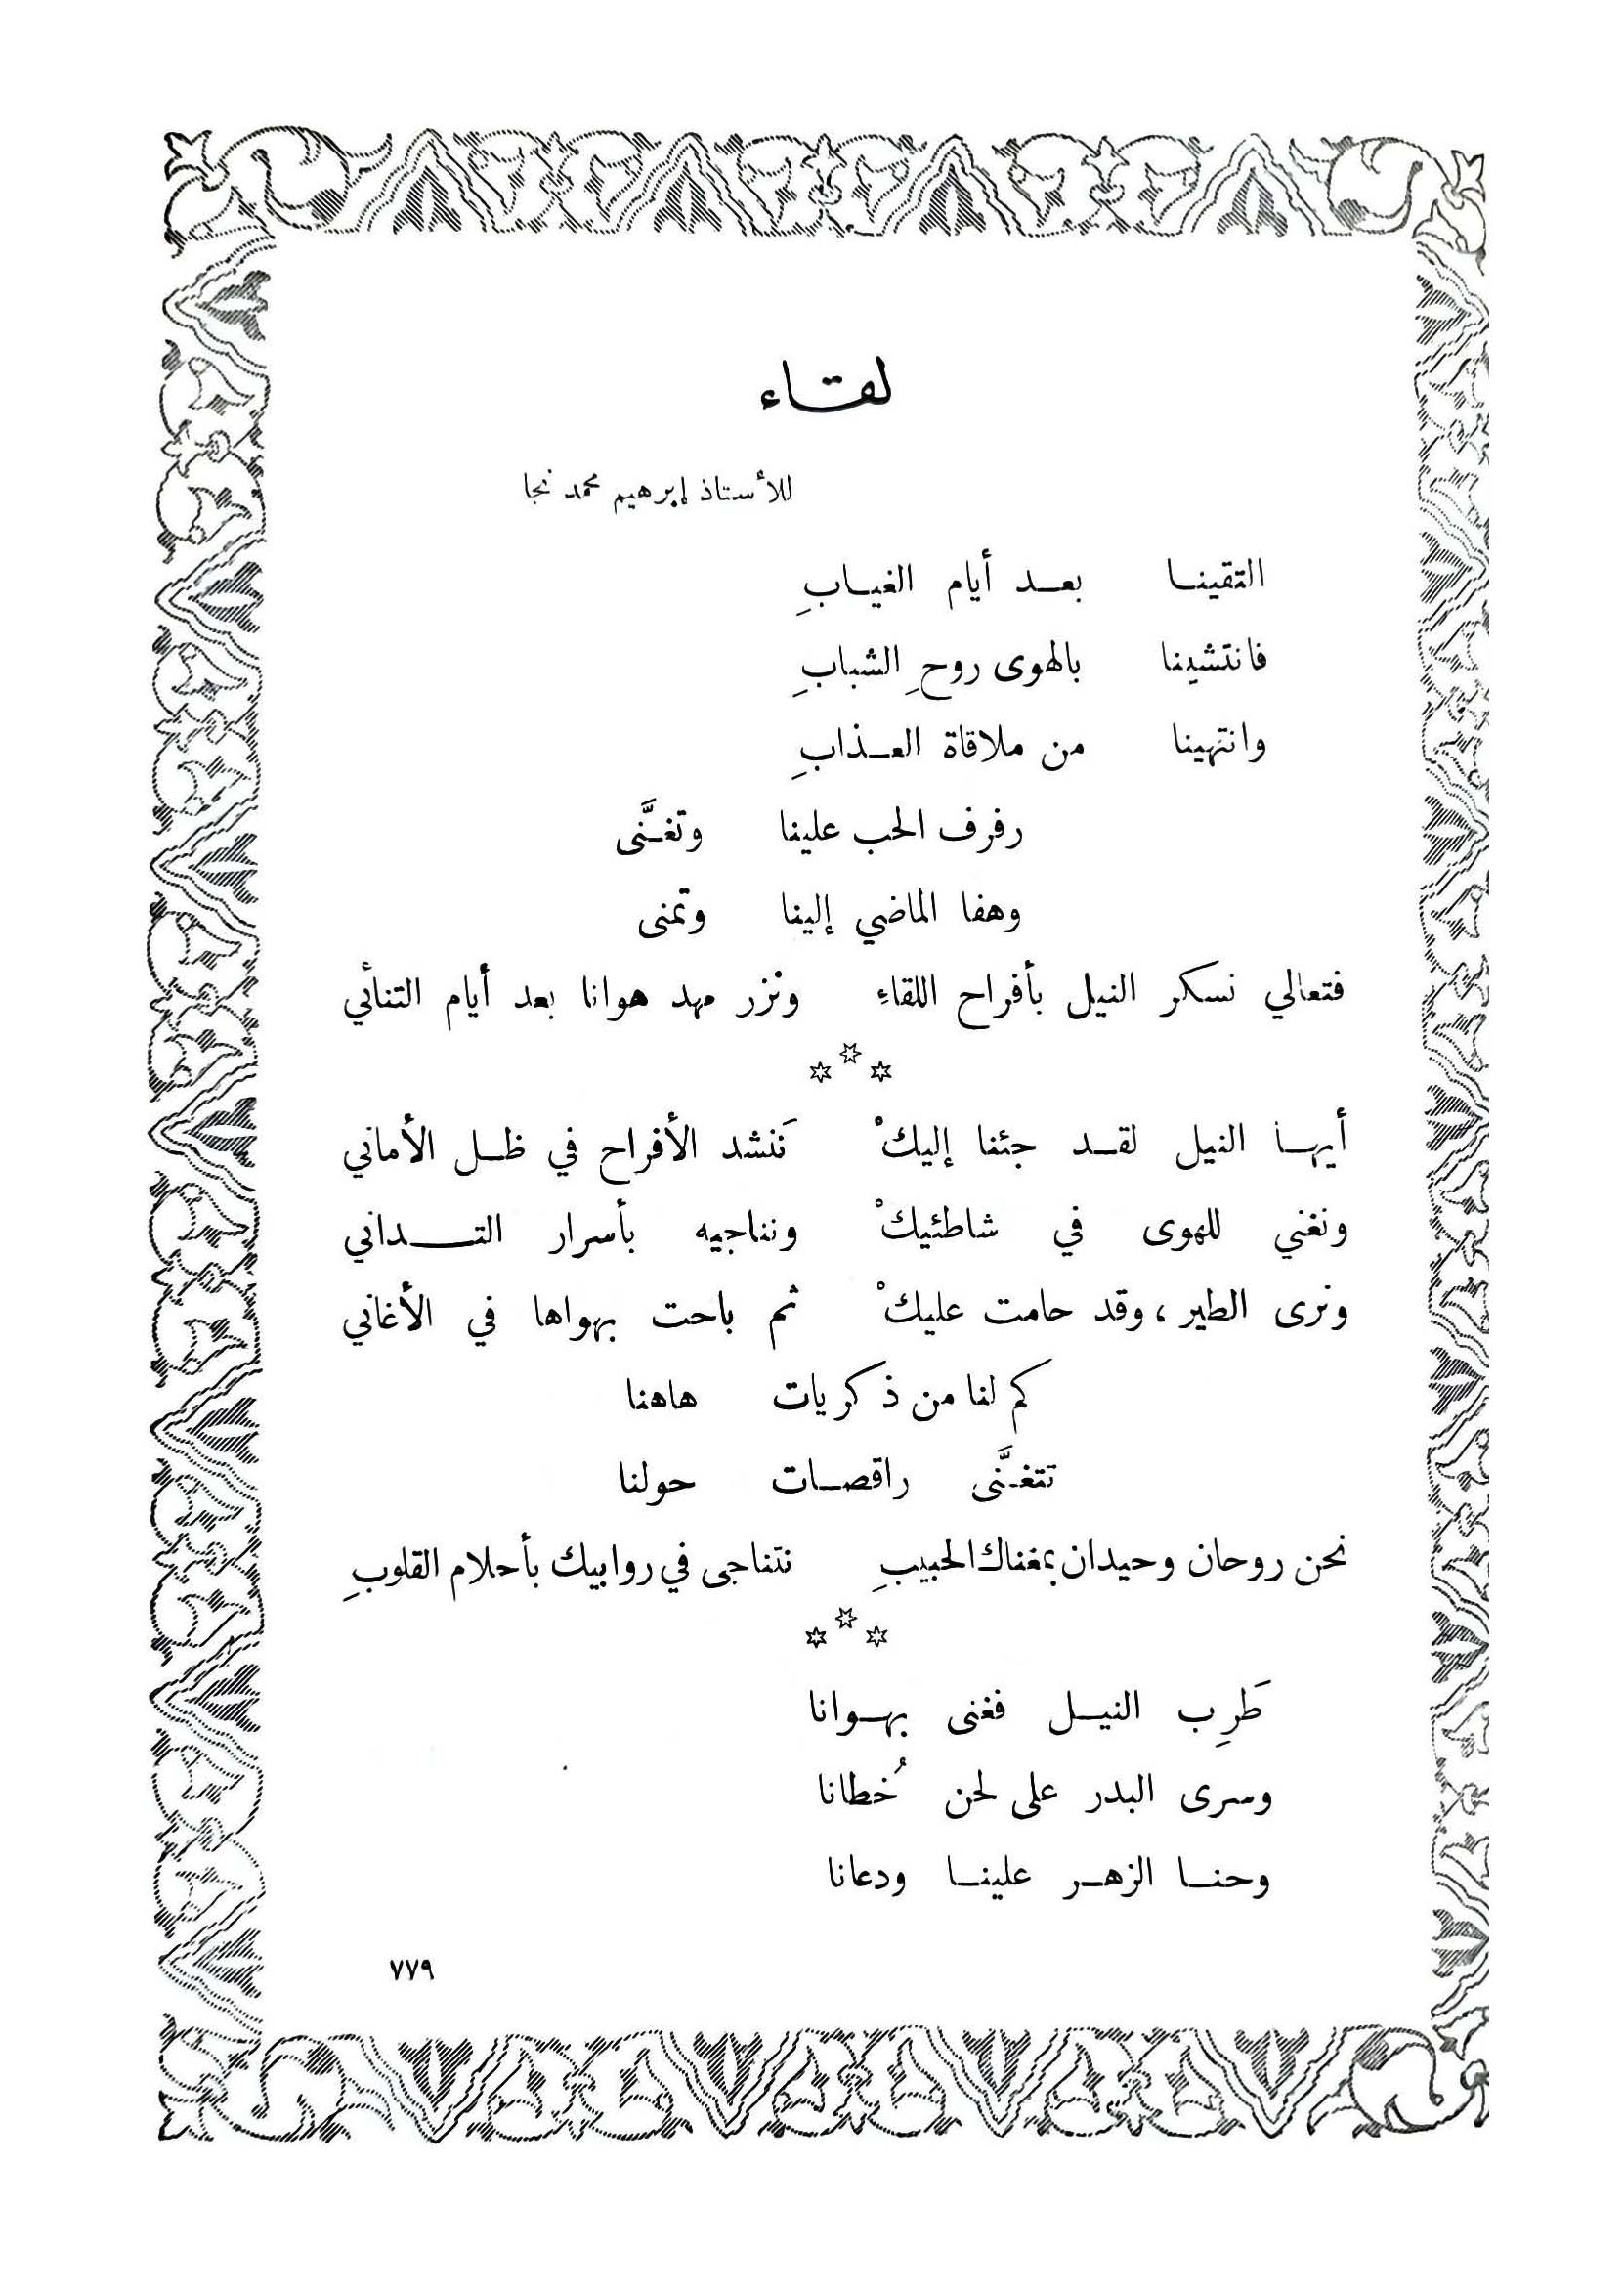 لقاء
للأستاذ إبرهيم محمد نجا
التقينا بعد أيام الغيابِ
فانتشينا بالهوى روحِ الشبابِ
وانتهينا من ملاقاة العذابِ
رفرف الحب علينا وتغنَّى
وهفا الماضي إلينا وتمنى
فتعالي نسكر النيل بأفراح اللقاءِ ونزر مهد هوانا بعد أيام التنائي
أيها النيل لقد جئنا إليكْ نَنشد الأفراح في ظل الأماني
ونغني للهوى في شاطئيكْ ونناجيه بأسرار التداني
ونرى الطير ، وقد حامت عليكْ ثم باحت بهواها في الأغاني
كم لنا من ذكريات هاهنا
تتغنَّى راقصات حولنا
نحن روحان وحيدان بمغناك الحبيبِ نتناجى في روابيك بأحلام القلوبِ
طَرِب النيل فغنى بهوانا
وسرى البدر على لحن خُطانا
وحنا الزهر علينا ودعانا
٧٧٩